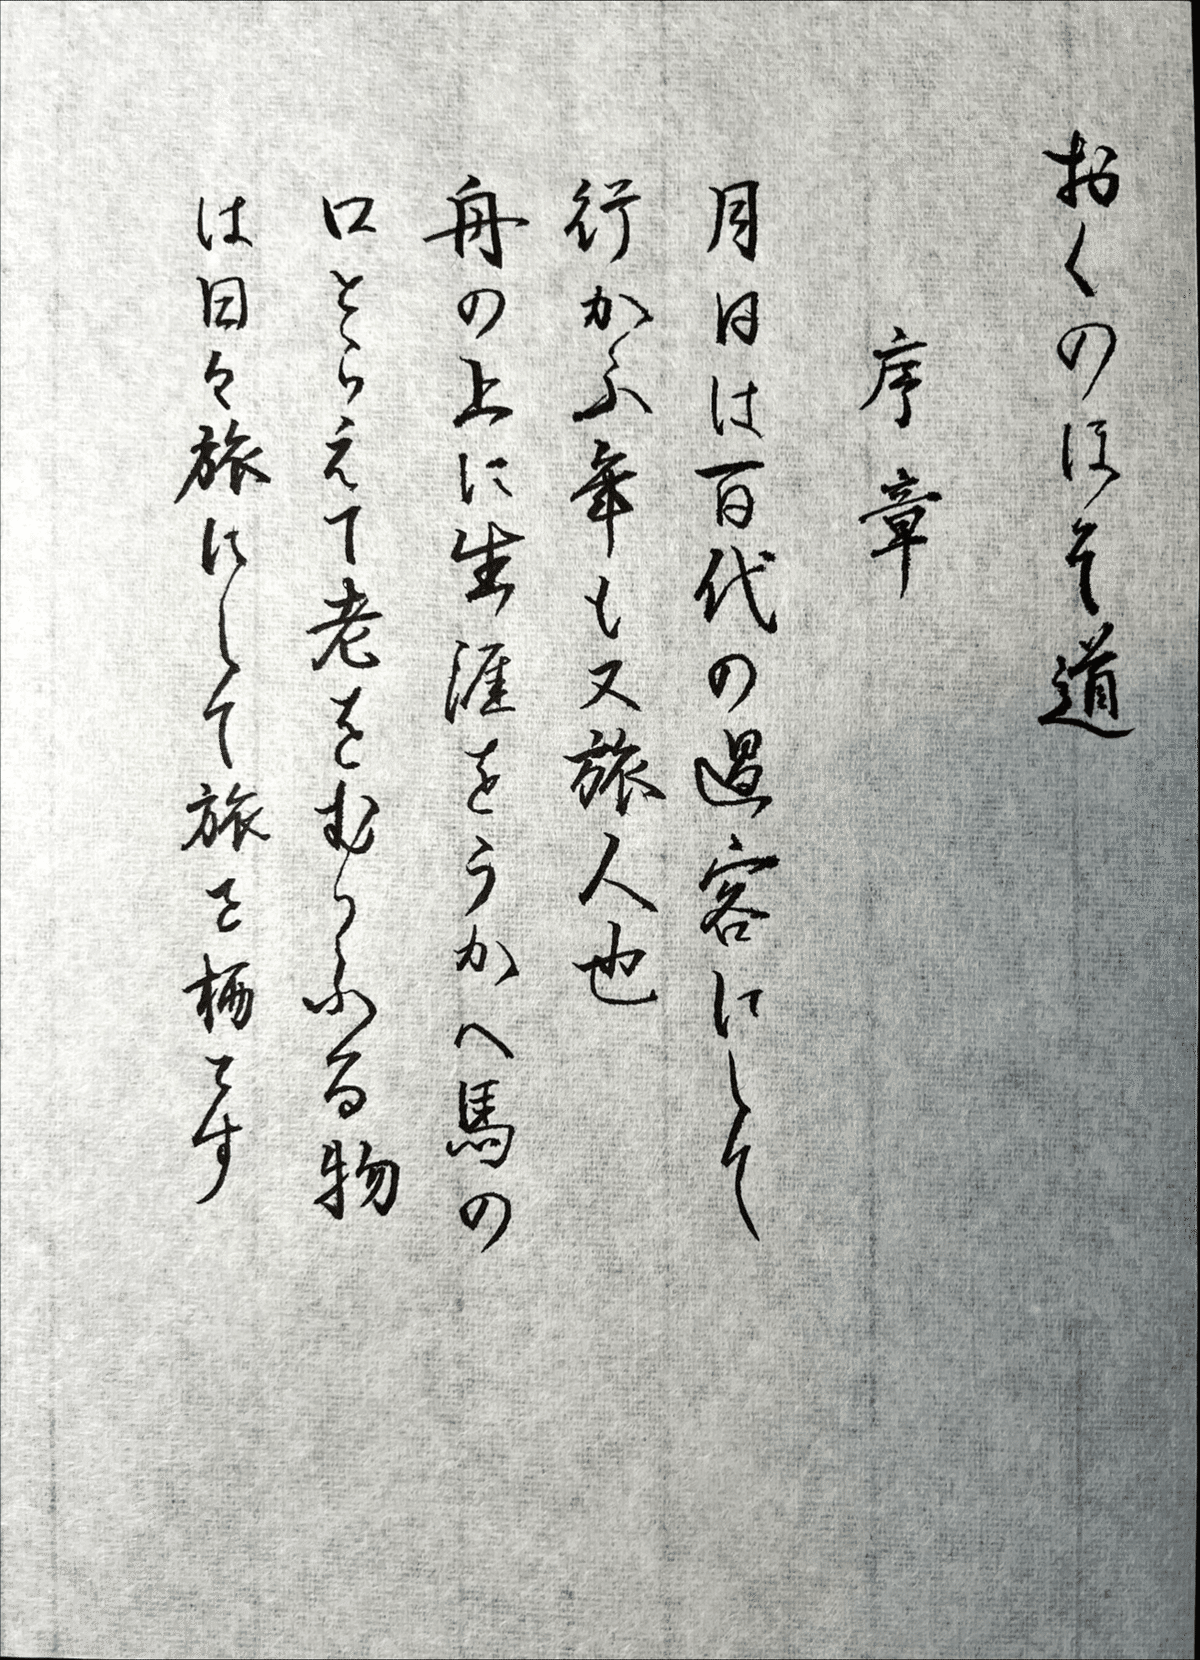 おくのほそ道
序章
月日は百代の過客にして
行かふ年も又旅人也
舟の上に生涯をうかへ馬の
口とらえて老をむかふる物
は日々旅にして旅を栖とす